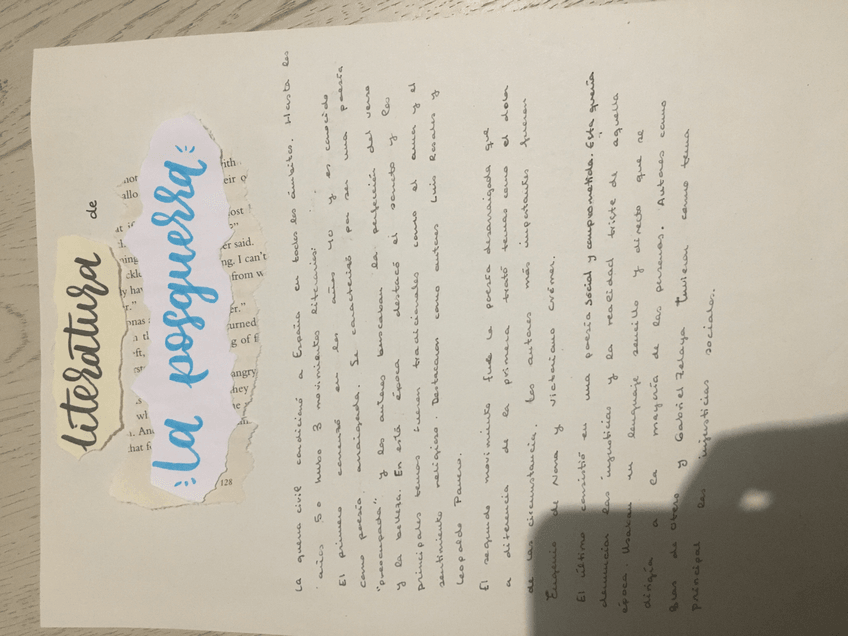 literatura de
la posguerra
128
La guerra civil condicionó a España en todos los ámbitos. Hasta los
años 50 hubo 3 movimientos literarios:
El primero comenzó en los años 40 y es conocido
como poesía arraigada. Se caracterizó por ser una poesía
"preocupada" y los autores buscaban la perfección del verso
y la belleza. En está época destacó el soneto y los
principales temas fueron tradicionales como el amor y el
sentimiento religioso. Destacaron como autores Luis Rosales y
Leopoldo Panero.
El segundo movimiento fue la poesía desarraigada que
a diferencia de la primera trató temas como el dolor
de las circunstancia. Los autores más importantes fueron
Eugenio de Nora y Victoriano Crémer.
El último consistió en una poesía social y comprometida. Esta quería
denunciar las injusticias y la realidad triste de aquella
época. Usaban un lenguaje sencillo y directo que se
dirigía a la mayoría de las personas. Autores como
Blas de Otero y Gabriel Zelaya tuvieron como tema
principal las injusticias sociales.